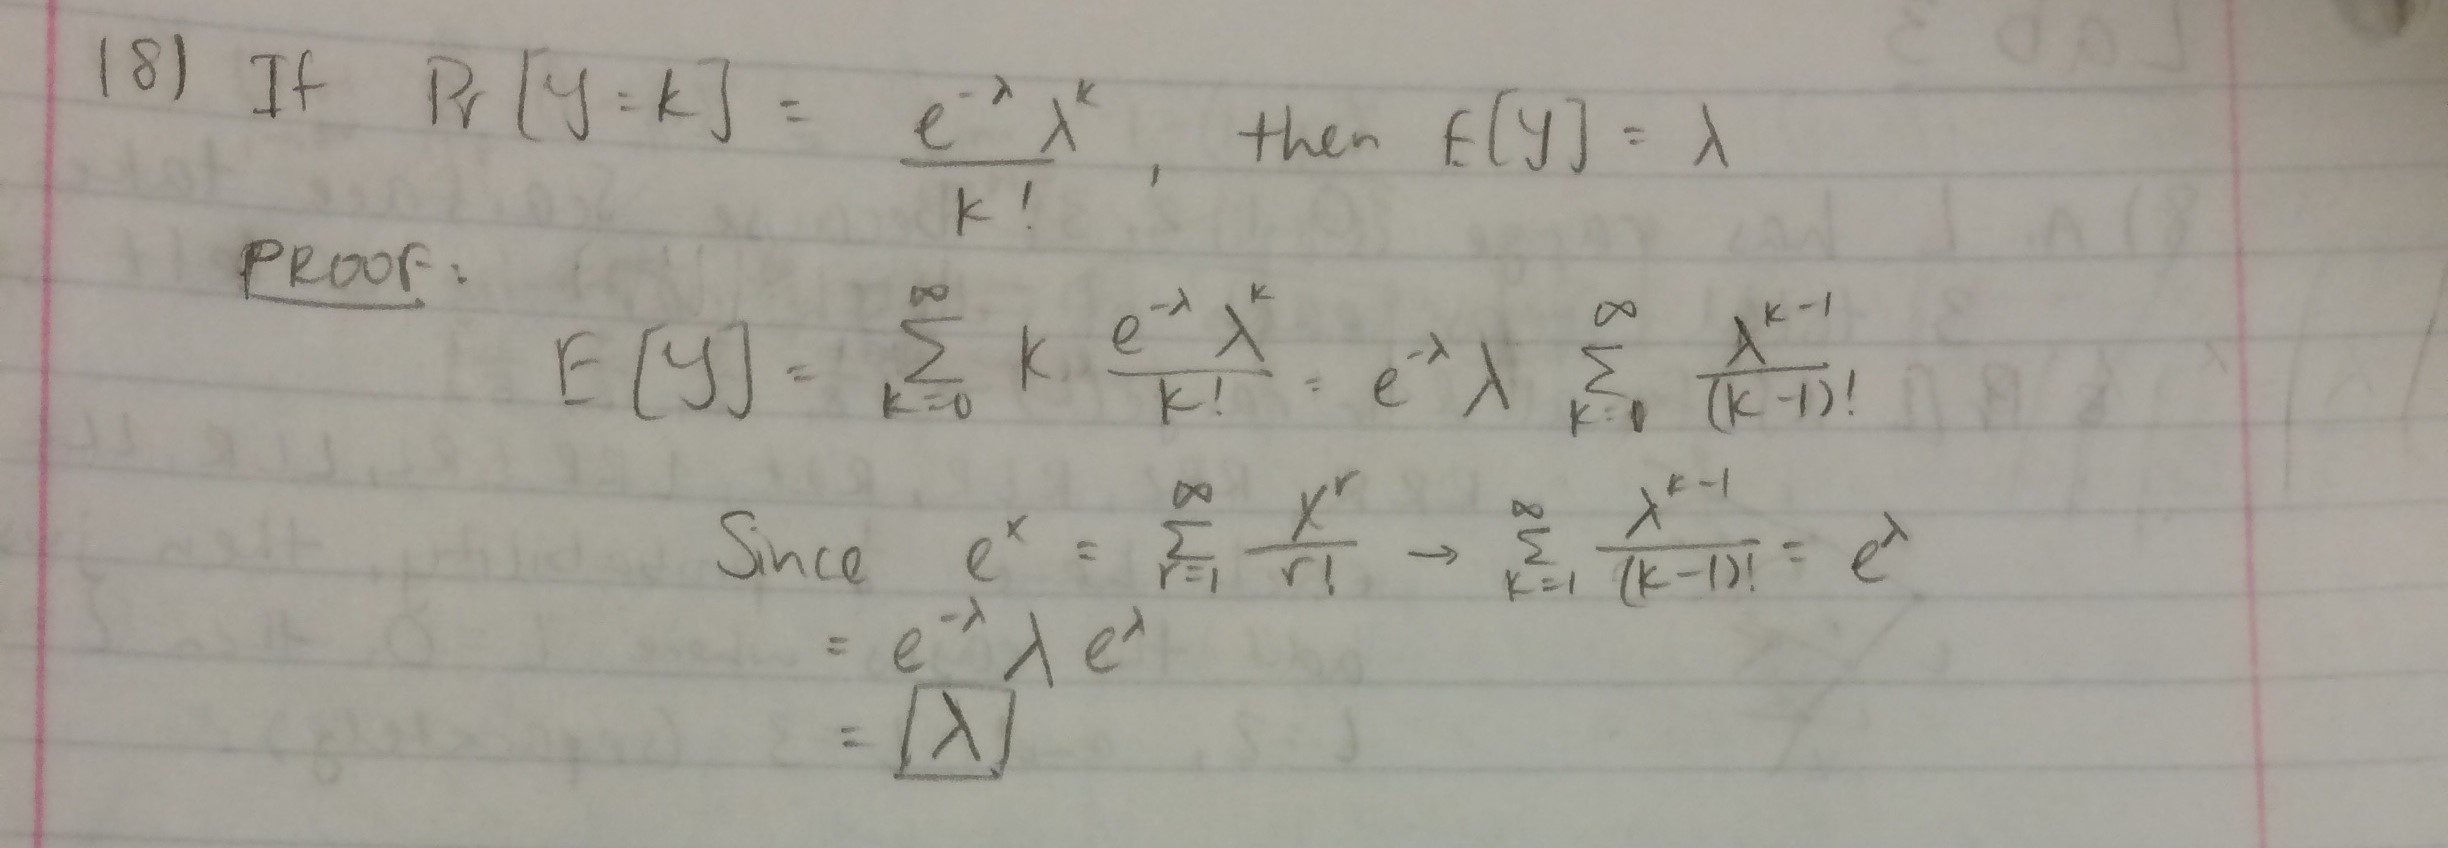 18) If Pr[Y=k] = e^{-λ} λ^k / k! , then E[Y] = λ
PROOF:
E[Y] = ∑_{k=0}^{∞} k · e^{-λ} λ^k / k! = e^{-λ} λ ∑_{k=1}^{∞} λ^{k-1} / (k-1)!
Since e^x = ∑_{r=1}^{∞} x^r / r! → ∑_{k=1}^{∞} λ^{k-1} / (k-1)! = e^λ
= e^{-λ} λ e^λ
= λ